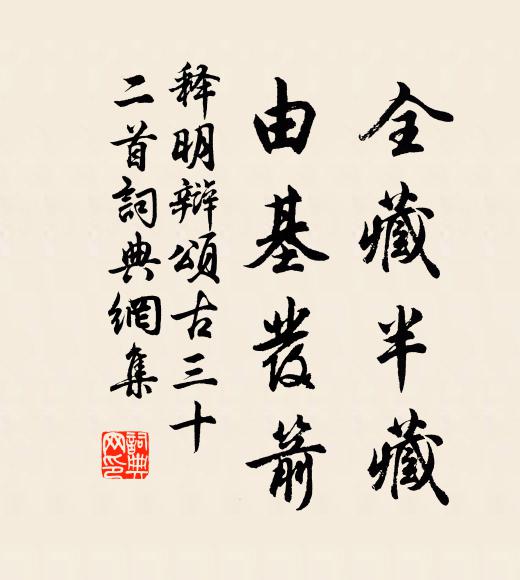 全藏半藏
由基發箭
释明辯頌古三十
二首詞典網集
詞典网印